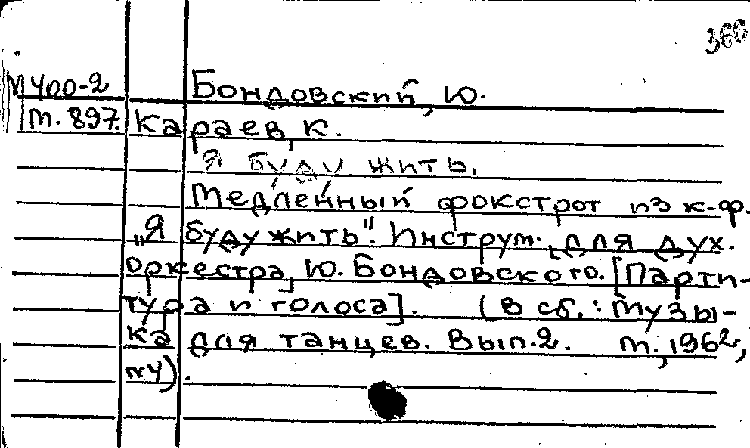 366
М 400-2 Бондовский, Ю.
М. 897. Караев, К.
Я буду жить.
Медленный фокстрот из к-ф.
„Я буду жить". Инструм. [для дух.
оркестра] Ю. Бондовского. [Парти-
тура и голоса]. (В сб.: Музы-
ка для танцев. Вып. 2. М., 1962,
№4).